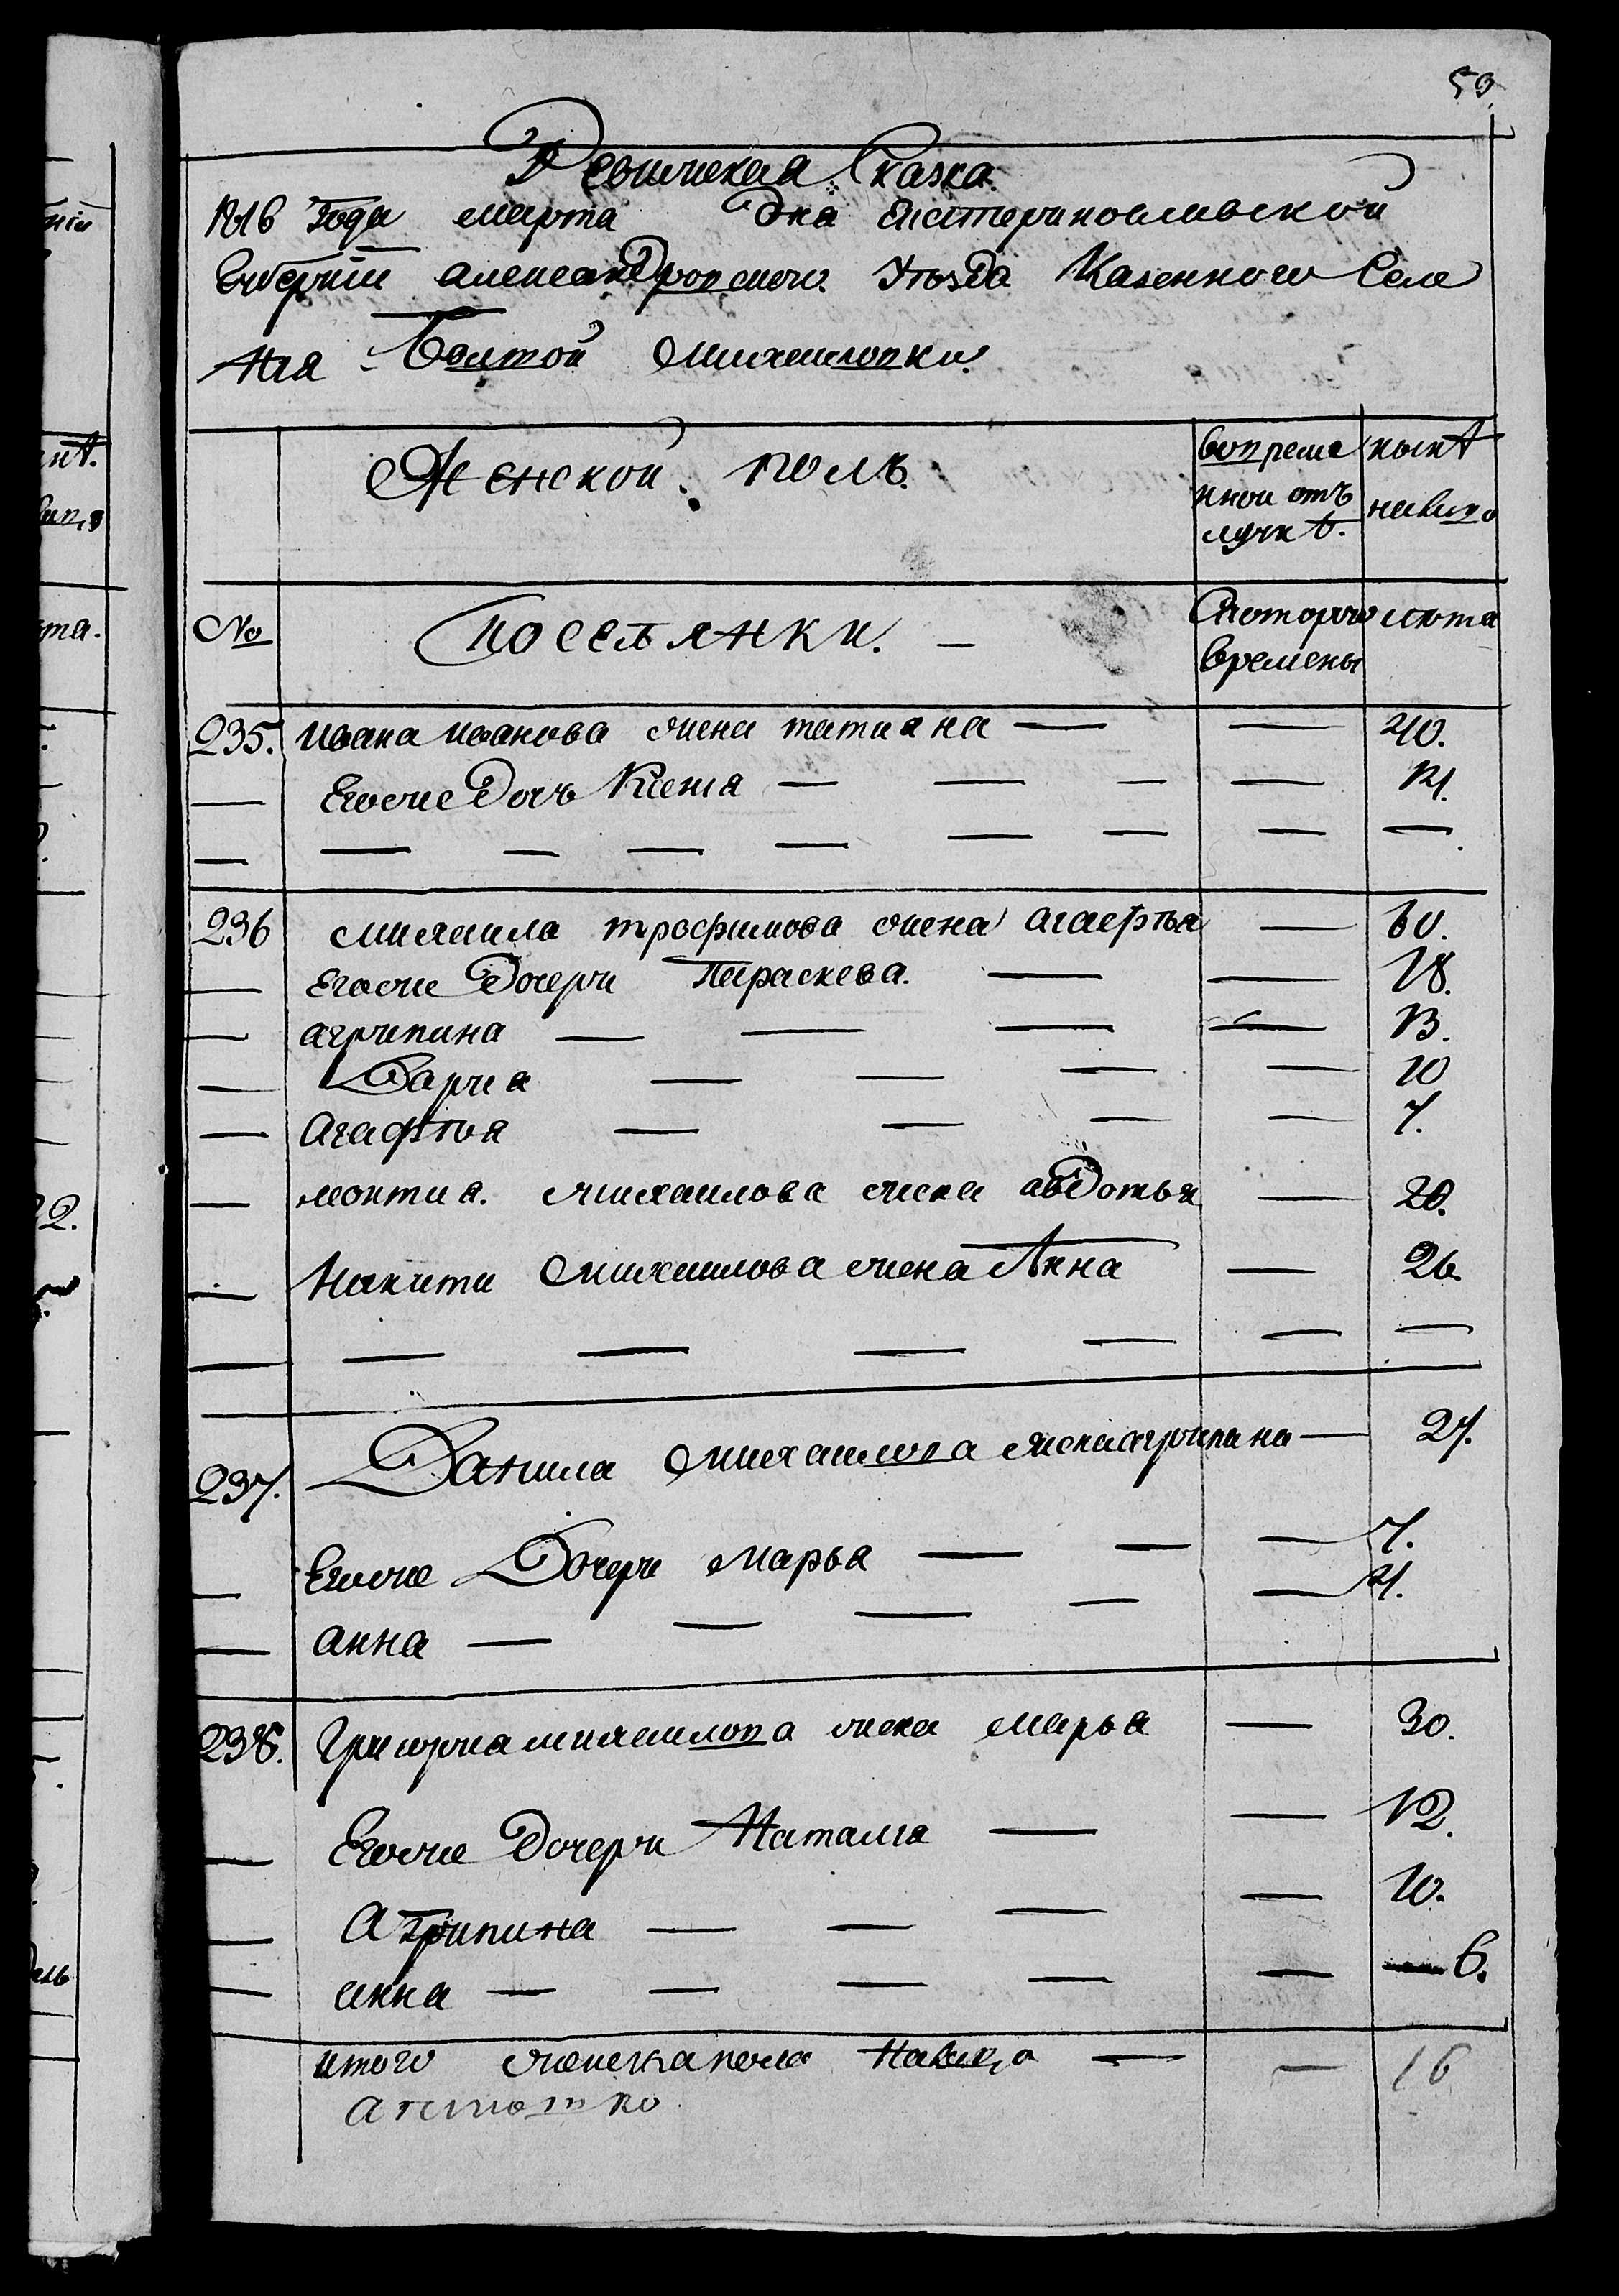 59.
Ревижская Сказка.
1816 года марта дня Екатеринославской
Губернии александровского уезда Казенного Селе
ния Белтой михаиловки.
Женской полъ.
вовреме нной отъ лучкѣ.
нынѣ на лицо
№
поселянки. —
Скоторого времены
лета
235. Ивана Иванова жена татиана — — 40.
— Егоже Дочь Ксения — — — — 14.
— — — — — — — — —
236 михаила трофимова жена агафия — 60.
— Егоже Дочери Параскева. — — 18.
— агрипина — — — — 13.
— Дария — — — — 10
— агафия — — — — 7.
— леонтия. михаилова жена авдотья — 20.
— Никити михаилова жена Анна — 26.
— — — — — — —
237. Данила михаилова жена агрипина — 27.
— Егоже Дочери марья — — — 7.
— анна — — — — — 4.
238. Григория михаилова жена марья — 30.
— Егоже дочери Наталия — — 12.
— Агрипина — — — — 10.
— анна — — — — — 6.
итого женска пола На лицо — — 16